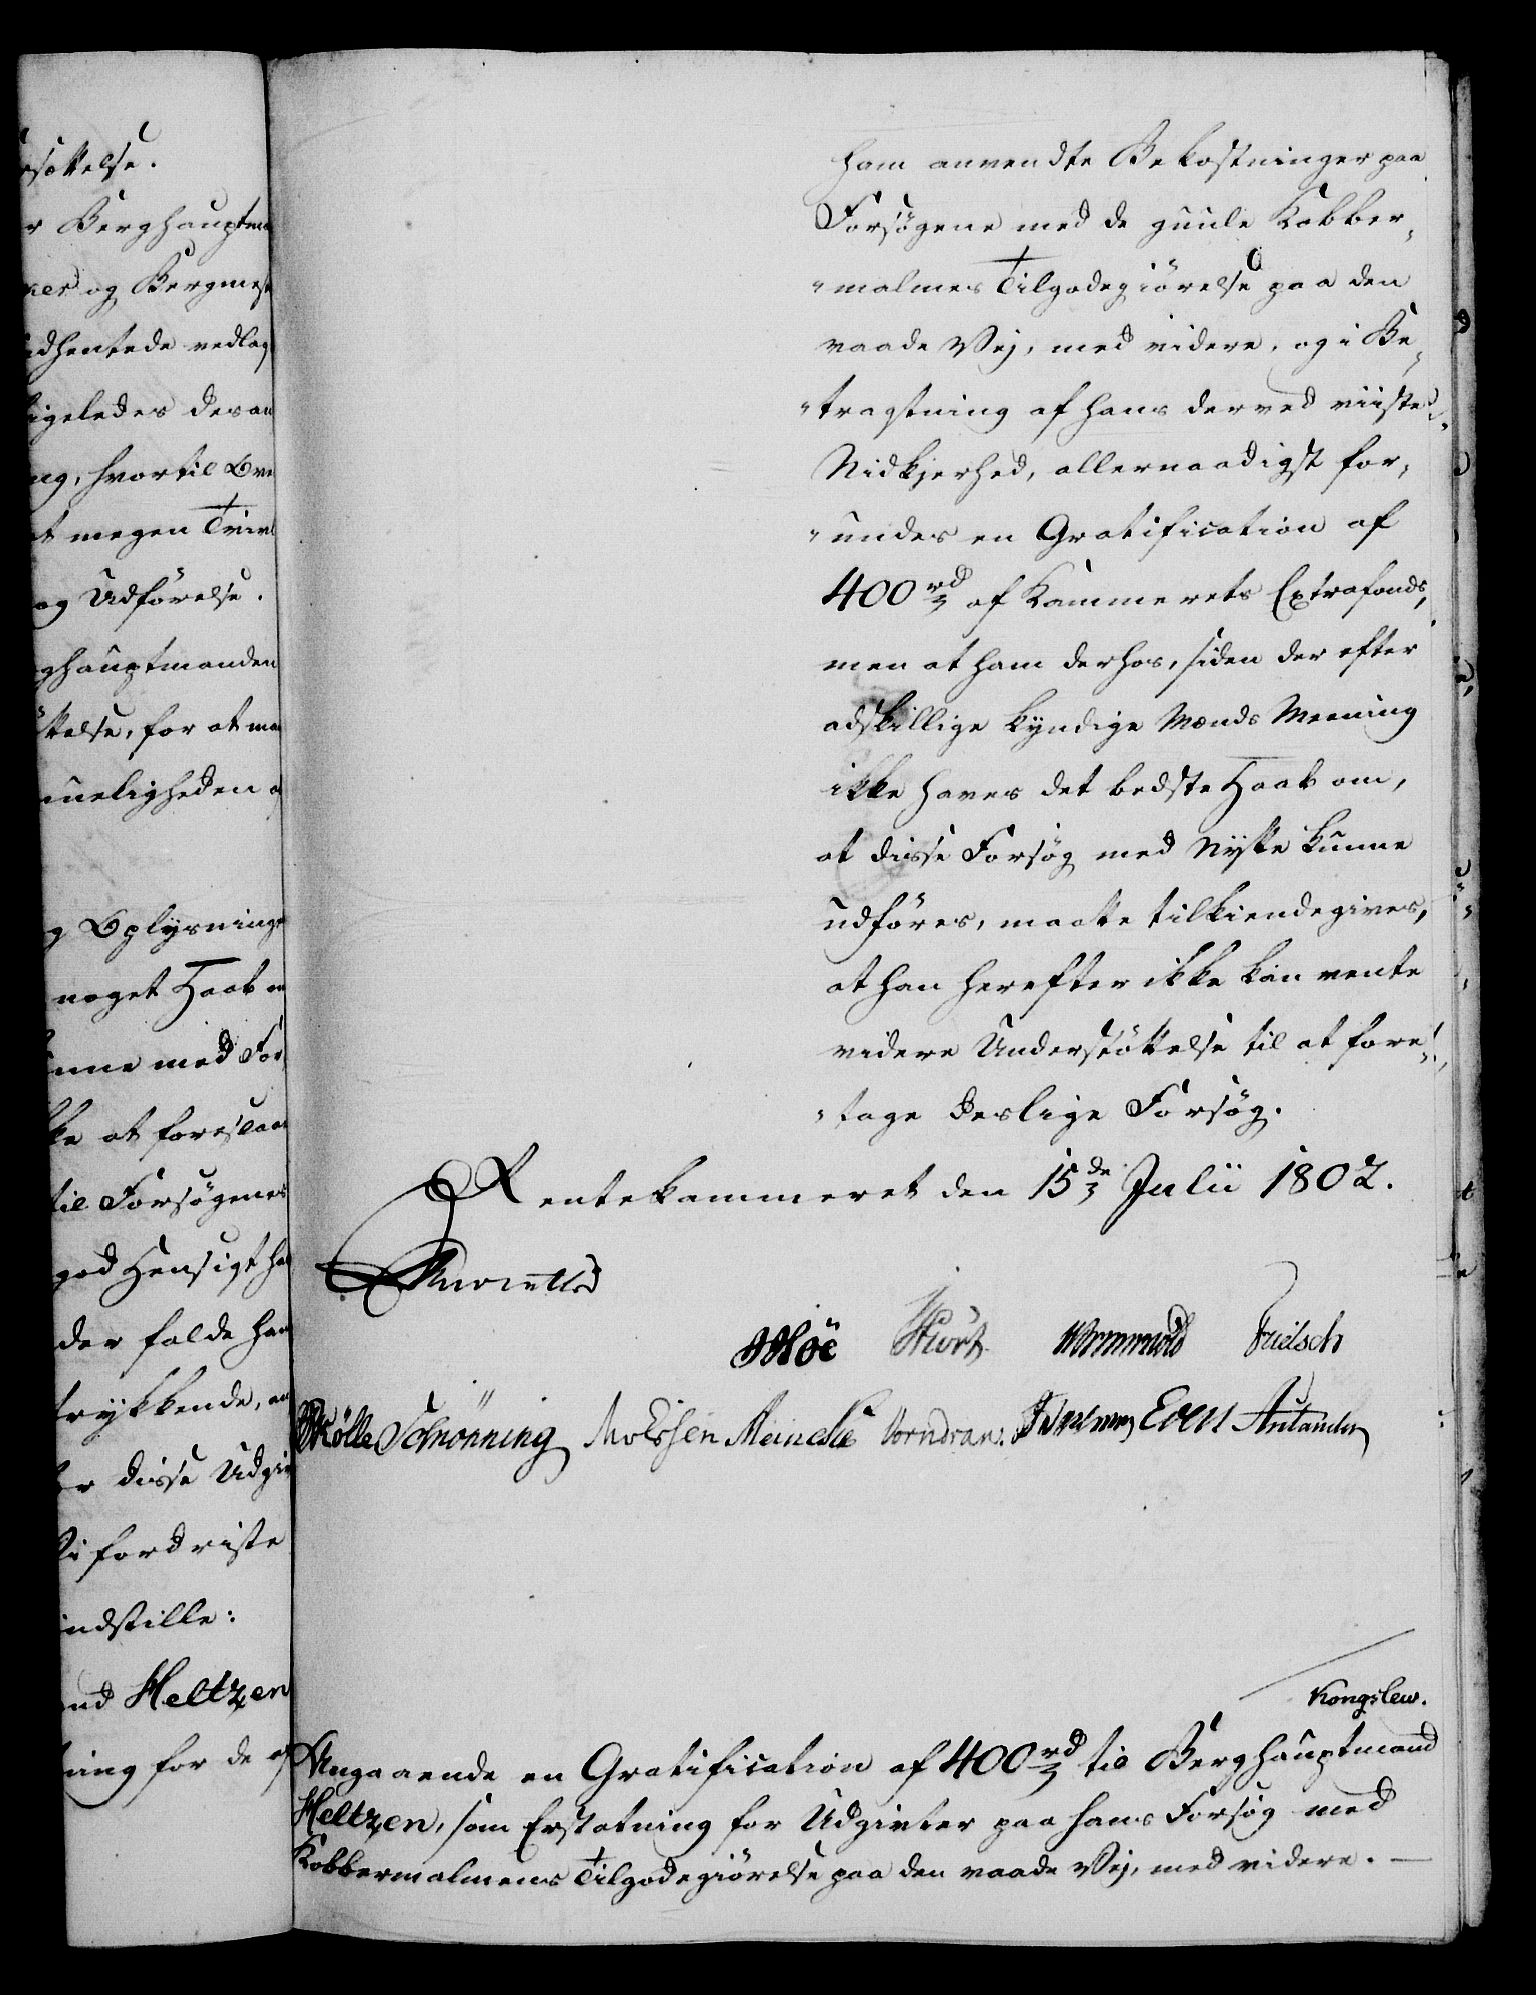 søttelse.
r Berghauptma
ker og Bergmest
ndhentede vedlag
ligeledes desan
ng, hvortil Ove
at megen Tvivl
og Udførelse.
ghauptmanden
ttelse, for at ma
ueligheden
g Oplysninge
noget Haab om
unne med For
ke at foreslaae
til Forsøgenes
god Hensigt ha
der falde ham
trykkende, an
er disse Udgiv
Vi fordriste
indstille:
and Heltzen
ning for de af
ham anvendte Bekostninger paa
Forsøgene med de guule Kobber-
-malmes Tilgodegiørelse paa den
vaade Vej, med videre, og i Be-
-tragtning af hans derved viiste
Nidkjerhed, allernaadigst for-
-undes en Gratification af
400 rd af Kammerets Extrafonds,
men at ham derhos, siden der efter
adskillige kyndige Mænds Meening
ikke haves det bedste Haab om,
at disse Forsøg med Nytte kunne
udføres, maatte tilkiendegives,
at han herefter ikke kan vente
videre Understøttelse til at fore-
-tage deslige Forsøg.
Rentekammeret den 15de Julii 1802.
Reventlow
Wormskiold Frielsch
Schønning Meinche Vorndran Evert Antander
Kongslew.
Angaaende en Gratification af 400 rd til Berghauptmand
Heltzen, som Erstatning for Udgivter paa hans Forsøg med
Kobbermalmens Tilgodegiørelse paa den vaade Vej, med videre. —